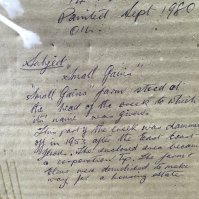 Painted Sept 1980
Oil.
Subject
"Small Gains"
"Small Gains" farm stood at
the head of the creek to which
its name was given.
This part of the creek was dammed
off in 1953 after the East Coast
The enclosed area became
a corporation tip. The farm
was demolished to make
way for a housing estate.